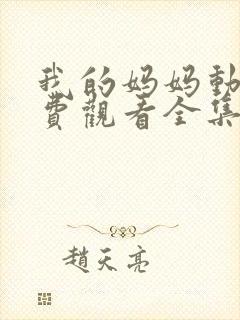 我的妈妈動
費觀看全集
趙天亮